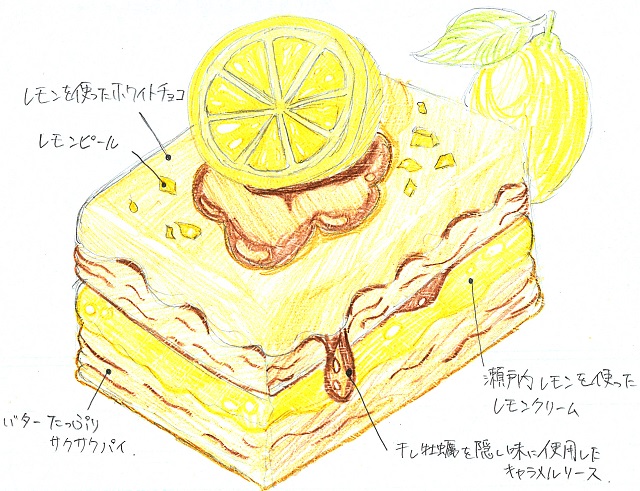 レモンを使ったホワイトチョコ
レモンピール
瀬戸内レモンを使った
レモンクリーム
バターたっぷり
サクサクパイ.
干し牡蠣を隠し味に使用した
キャラメルソース.